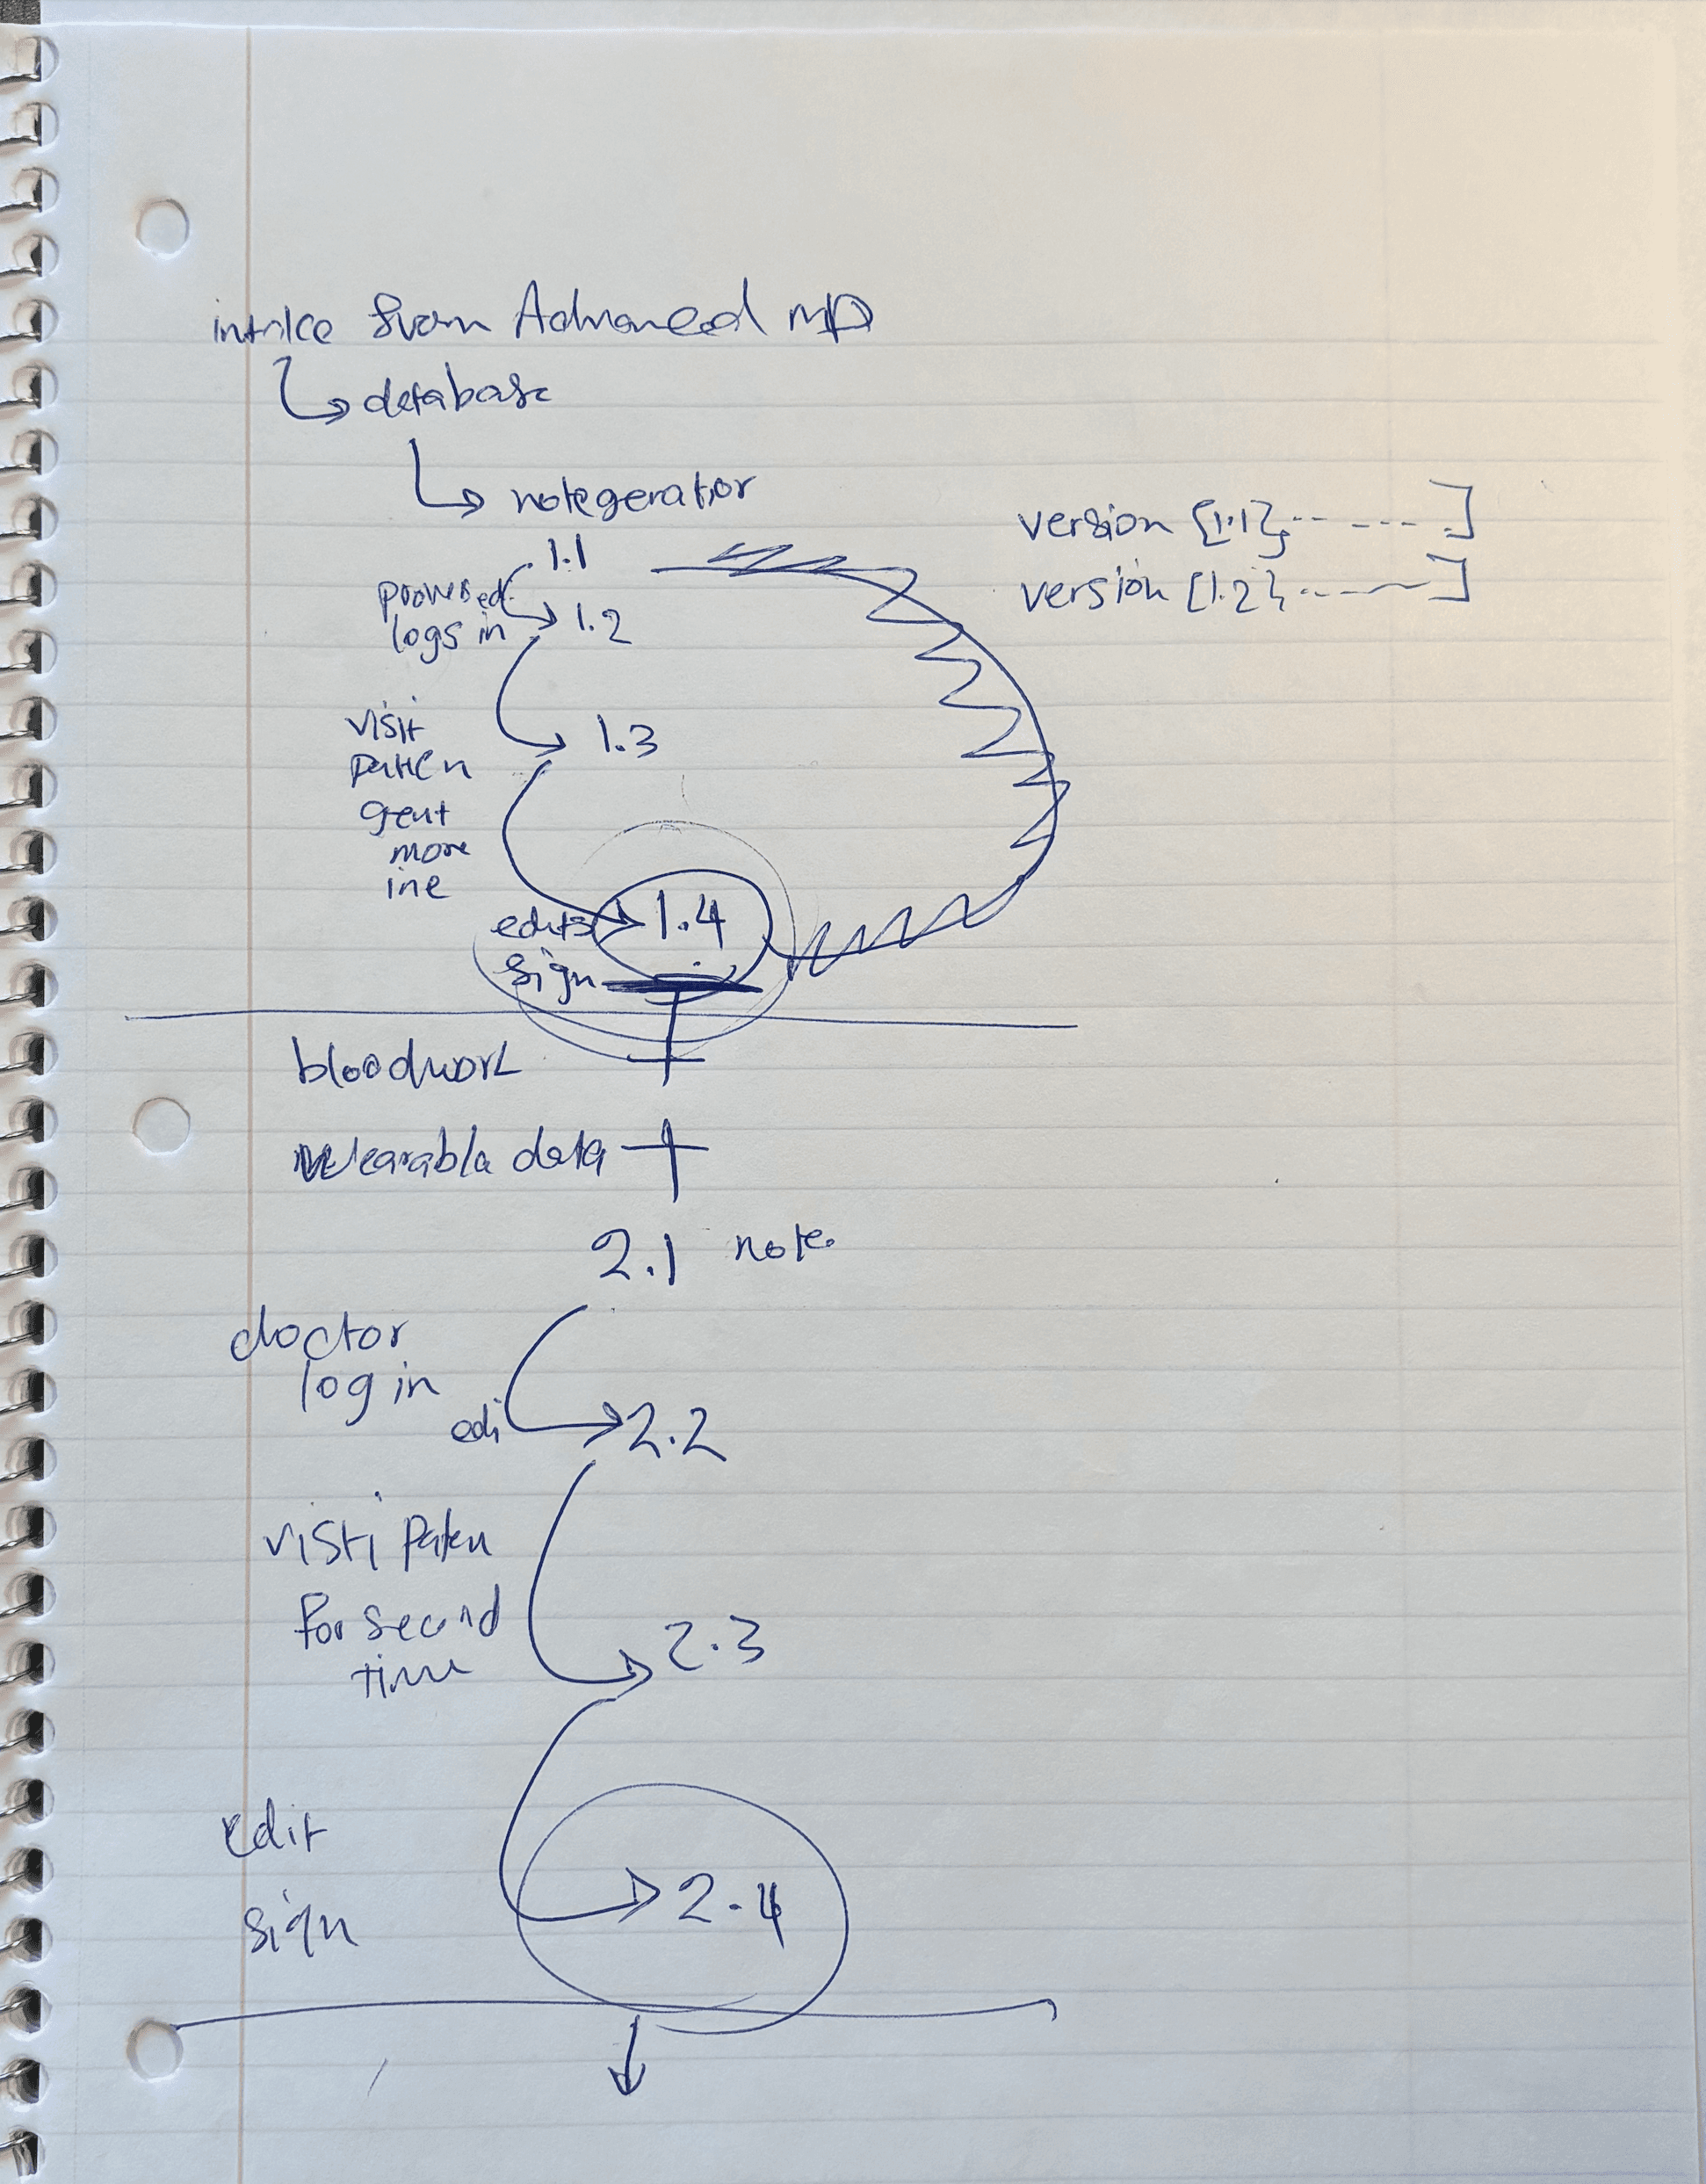 intake from Advanced MD
database
notegerator
version [1.1}, -- --- ]
1.1
version [1.2}, -------]
logs in
1.2
visit
1.3
paten
more
edits
1.4
sign
bloodwork
wearabla data
2.1 note
doctor
log in
edi
2.2
visti paten
for second
time
2.3
edit
2.4
sign